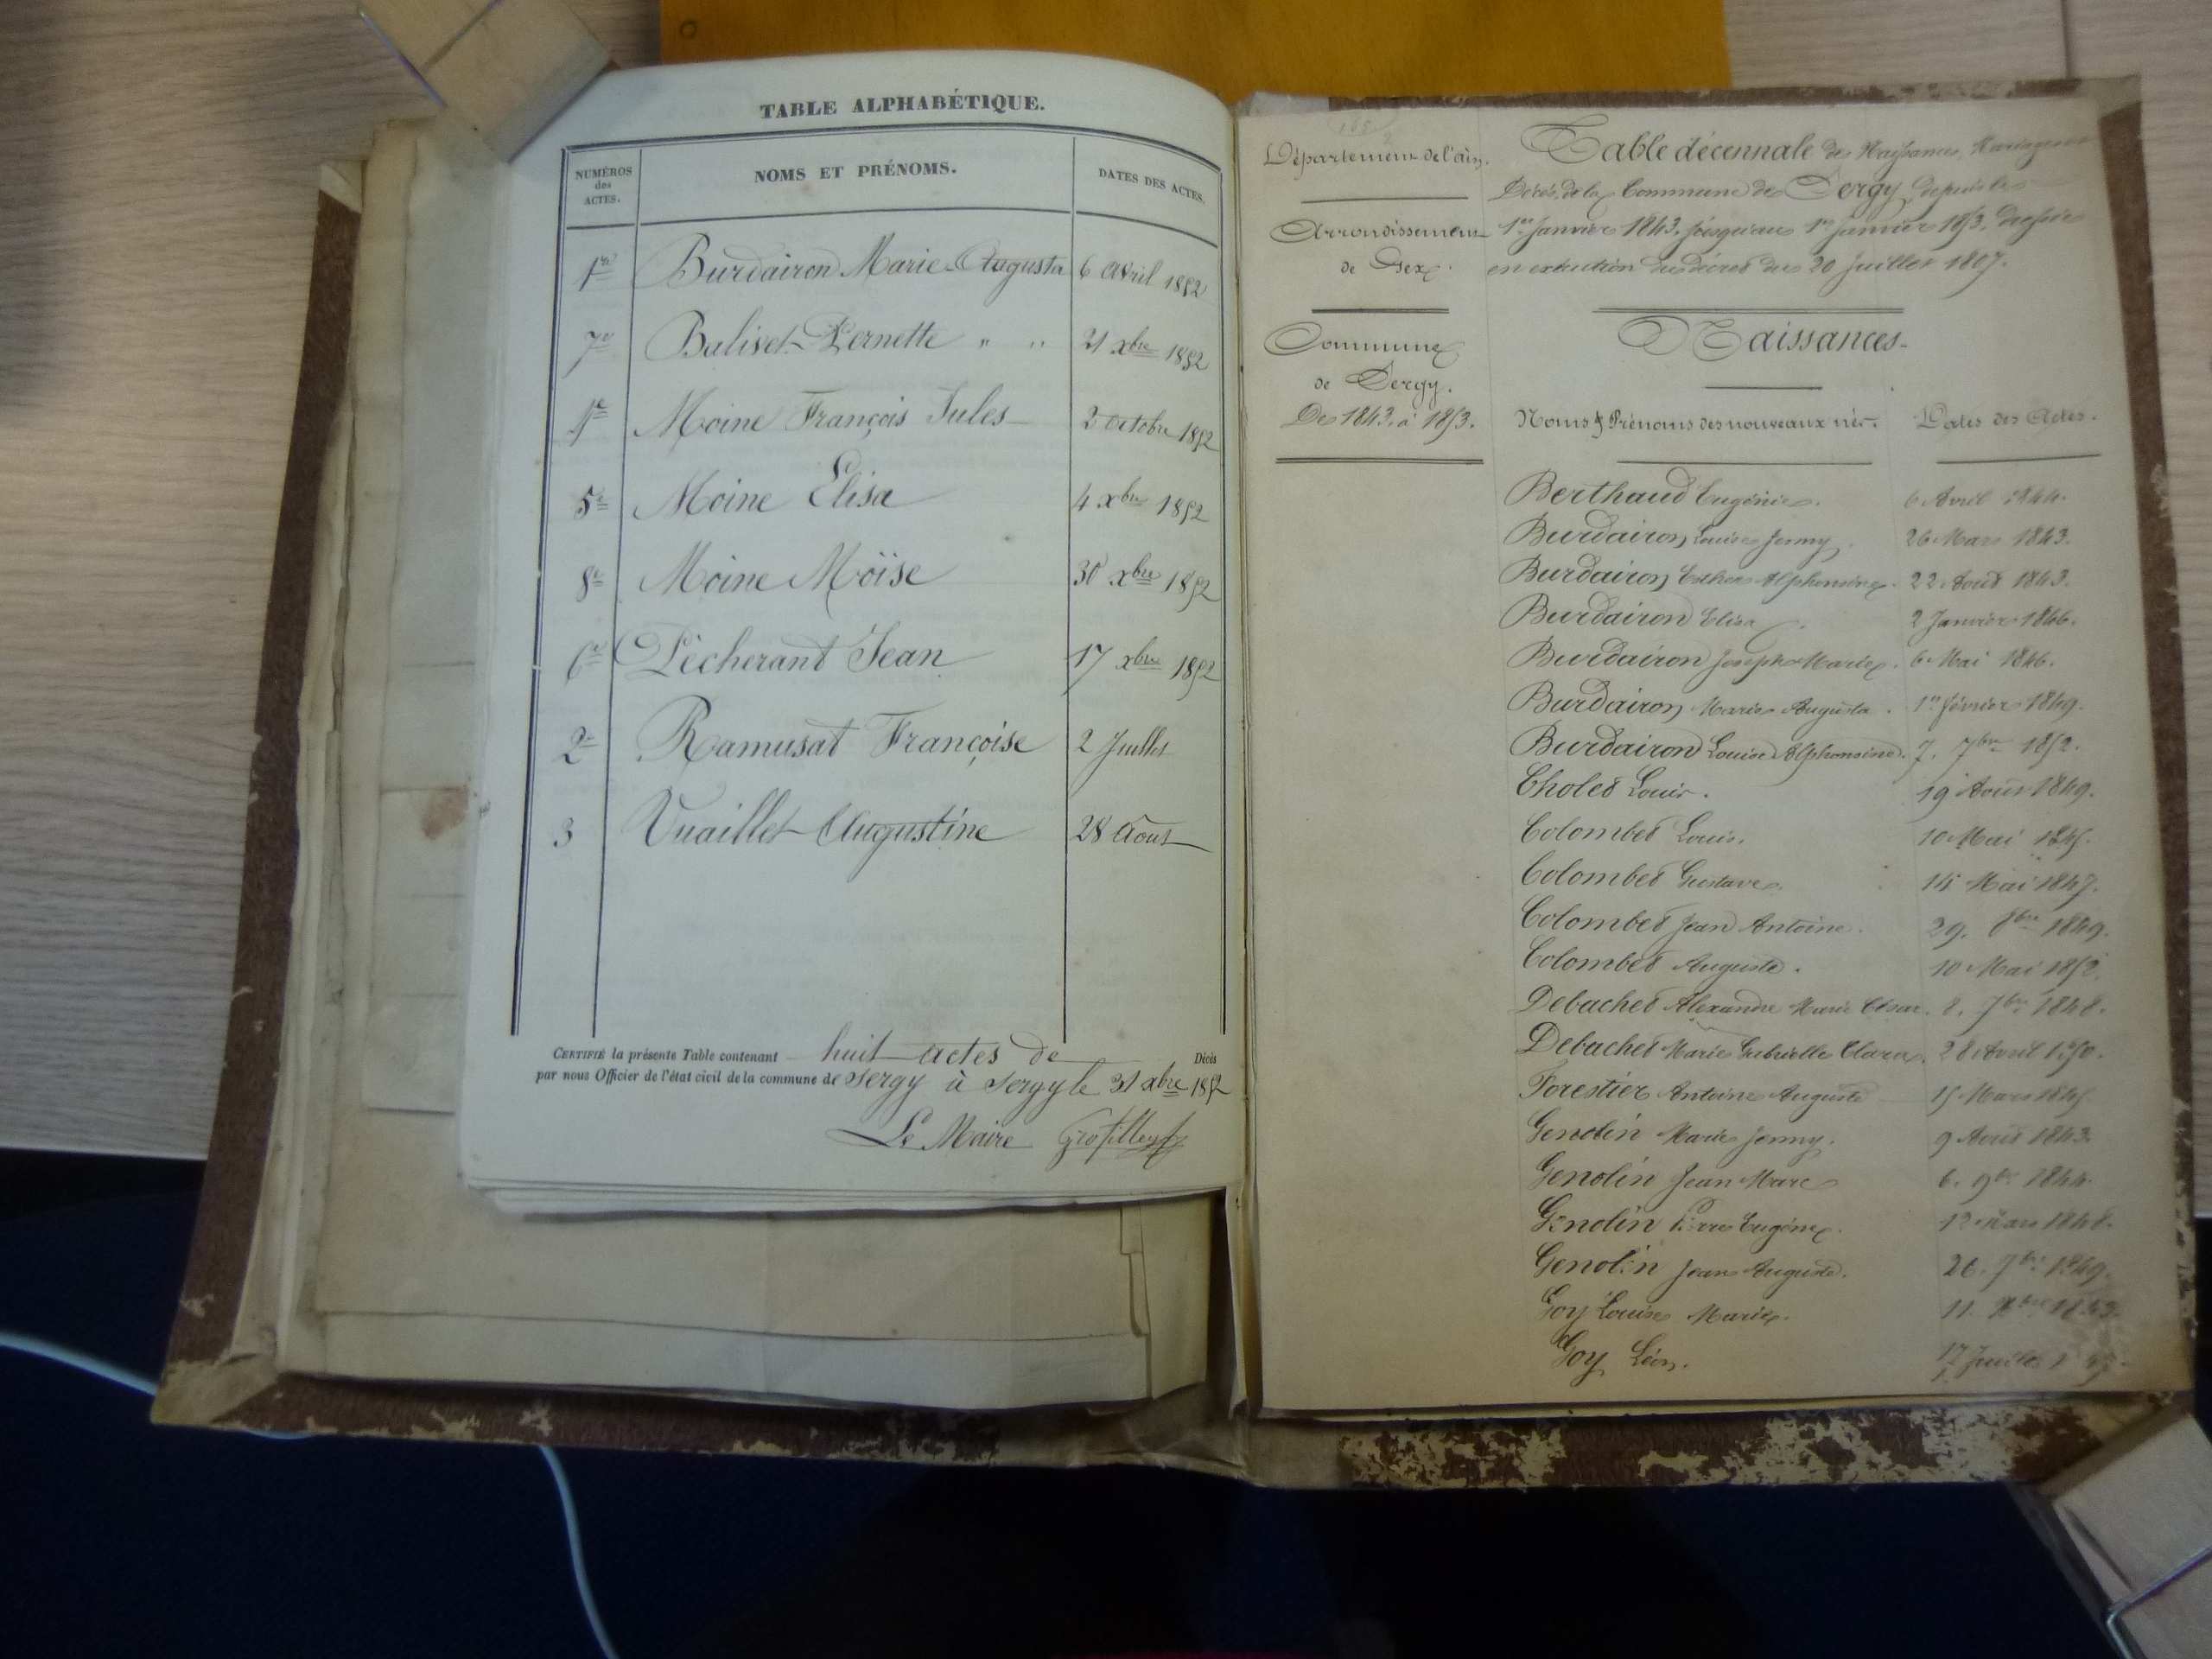 TABLE ALPHABÉTIQUE.
NUMÉROS
des
ACTES.
NOMS ET PRÉNOMS.
DATES DES ACTES.
1re Burdairon Marie Augusta 6 Avril 1852
7e Baliset Pernette " " 21 xbre 1852
4e Moine François Jules 2 octobre 1852
5e Moine Elisa 4 xbre 1852
8e Moine Moïse 30 xbre 1852
6e Pécherant Jean 17 xbre 1852
2e Ramusat Françoise 2 Juillet
3 Vuaillet Augustine 28 Aout
CERTIFIÉ la présente Table contenant huit actes de Décès
par nous Officier de l'état civil de la commune de Sergy à Sergy le 31 xbre 1852
Le Maire
Département de l'ain.
Arrondissement
de Gex.
Commune
de Sergy.
De 1843 à 1853.
Table décennale des Naissances, Mariages et
Décès de la Commune de Sergy, depuis le
1er Janvier 1843, jusqu'au 1er Janvier 1853, dressée
en exécution du décret du 20 Juillet 1807.
Naissances.
Noms & Prénoms des nouveaux nés. Dates des Actes.
Berthaud Eugénie. 6 Avril 1844.
Burdairon Louise Jenny. 26 Mars 1843.
Burdairon Esther Alphonsine. 22 Aout 1843.
Burdairon Elisa. 2 Janvier 1846.
Burdairon Joseph Marie. 6 Mai 1846.
Burdairon Marie Augusta. 1er février 1849.
Burdairon Louise Alphonsine. 7. 7bre 1852.
Cholet Louis. 19 Aout 1849.
Colombet Louis. 10 Mai 1845.
Colombet Gustave. 14 Mai 1847.
Colombet Jean Antoine. 29. 8bre 1849.
Colombet Auguste. 10 Mai 1852.
Debachet Alexandre Marie César. 8. 7bre 1848.
Debachet Marie Gabrielle Clara. 28 Avril 1850.
Forestier Antoine Auguste 15 Mars 1845
Genolin Marie Jenny. 9 Aout 1843.
Genolin Jean Marc 6. 9bre 1844.
Genolin Pierre Eugène. 12 Mars 1848.
Genolin Jean Auguste. 26. 7bre 1849.
Goy Louise Marie. 11.
Goy Léon. 17 Juillet